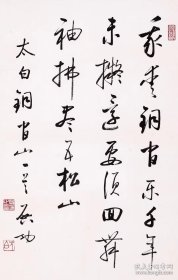 我愛銅官樂千年
未擬還要須回舞
袖拂盡五松山
太白銅官山一首 启功